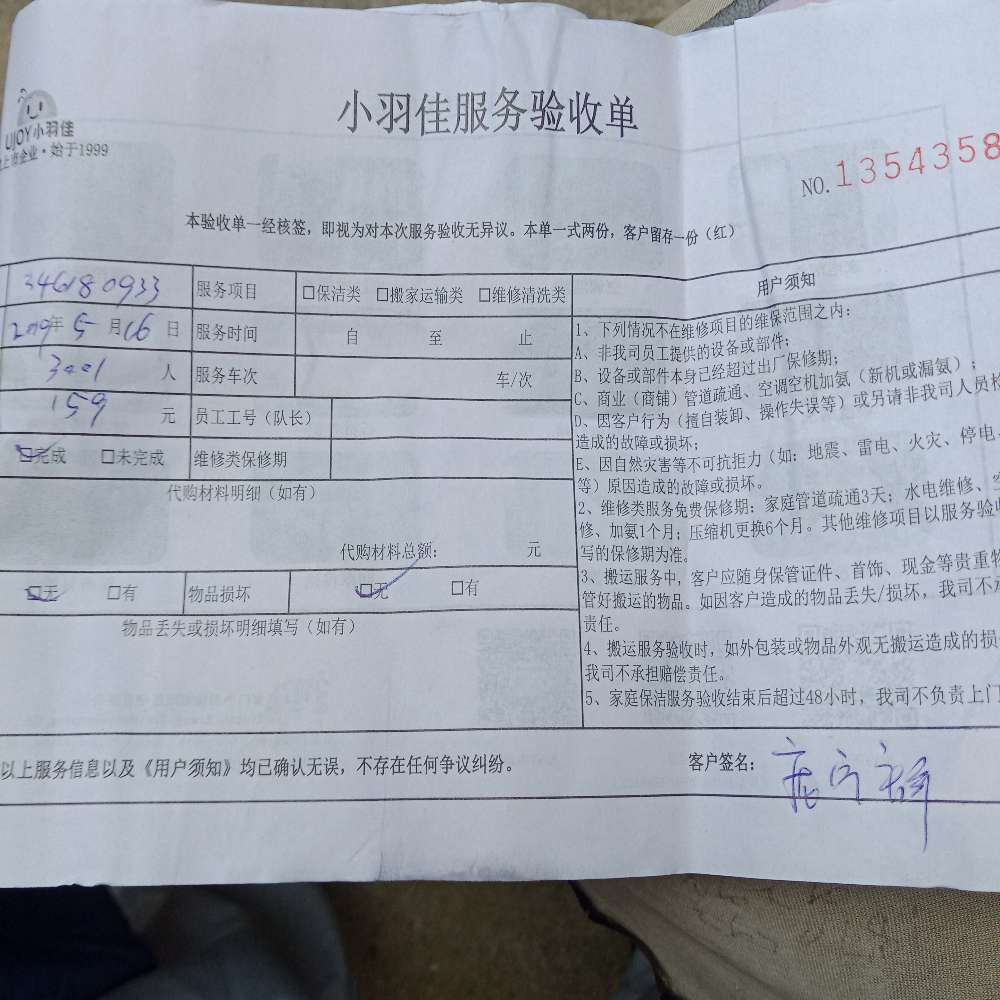 小羽佳服务验收单
UJOY小羽佳
上市企业·始于1999
NO.1354358
本验收单一经核签，即视为对本次服务验收无异议。本单一式两份，客户留存一份（红）
346180933 服务项目 □保洁类 □搬家运输类 □维修清洗类
2019年5月16日 服务时间 自 至 止
3001 人 服务车次 车/次
159 元 员工工号（队长）
□完成 □未完成 维修类保修期
代购材料明细（如有）
代购材料总额： 元
□无 □有 物品损坏 □无 □有
物品丢失或损坏明细填写（如有）
用户须知
1、下列情况不在维修项目的维保范围之内：
A、非我司员工提供的设备或部件；
B、设备或部件本身已经超过出厂保修期；
C、商业（商铺）管道疏通、空调空机加氨（新机或漏氨）；
D、因客户行为（擅自装卸、操作失误等）或另请非我司人员检
造成的故障或损坏；
E、因自然灾害等不可抗拒力（如：地震、雷电、火灾、停电、
等）原因造成的故障或损坏。
2、维修类服务免费保修期：家庭管道疏通3天；水电维修、空
修、加氨1个月；压缩机更换6个月。其他维修项目以服务验收
写的保修期为准。
3、搬运服务中，客户应随身保管证件、首饰、现金等贵重物
管好搬运的物品。如因客户造成的物品丢失/损坏，我司不承
责任。
4、搬运服务验收时，如外包装或物品外观无搬运造成的损
我司不承担赔偿责任。
5、家庭保洁服务验收结束后超过48小时，我司不负责上门
以上服务信息以及《用户须知》均已确认无误，不存在任何争议纠纷。
客户签名：